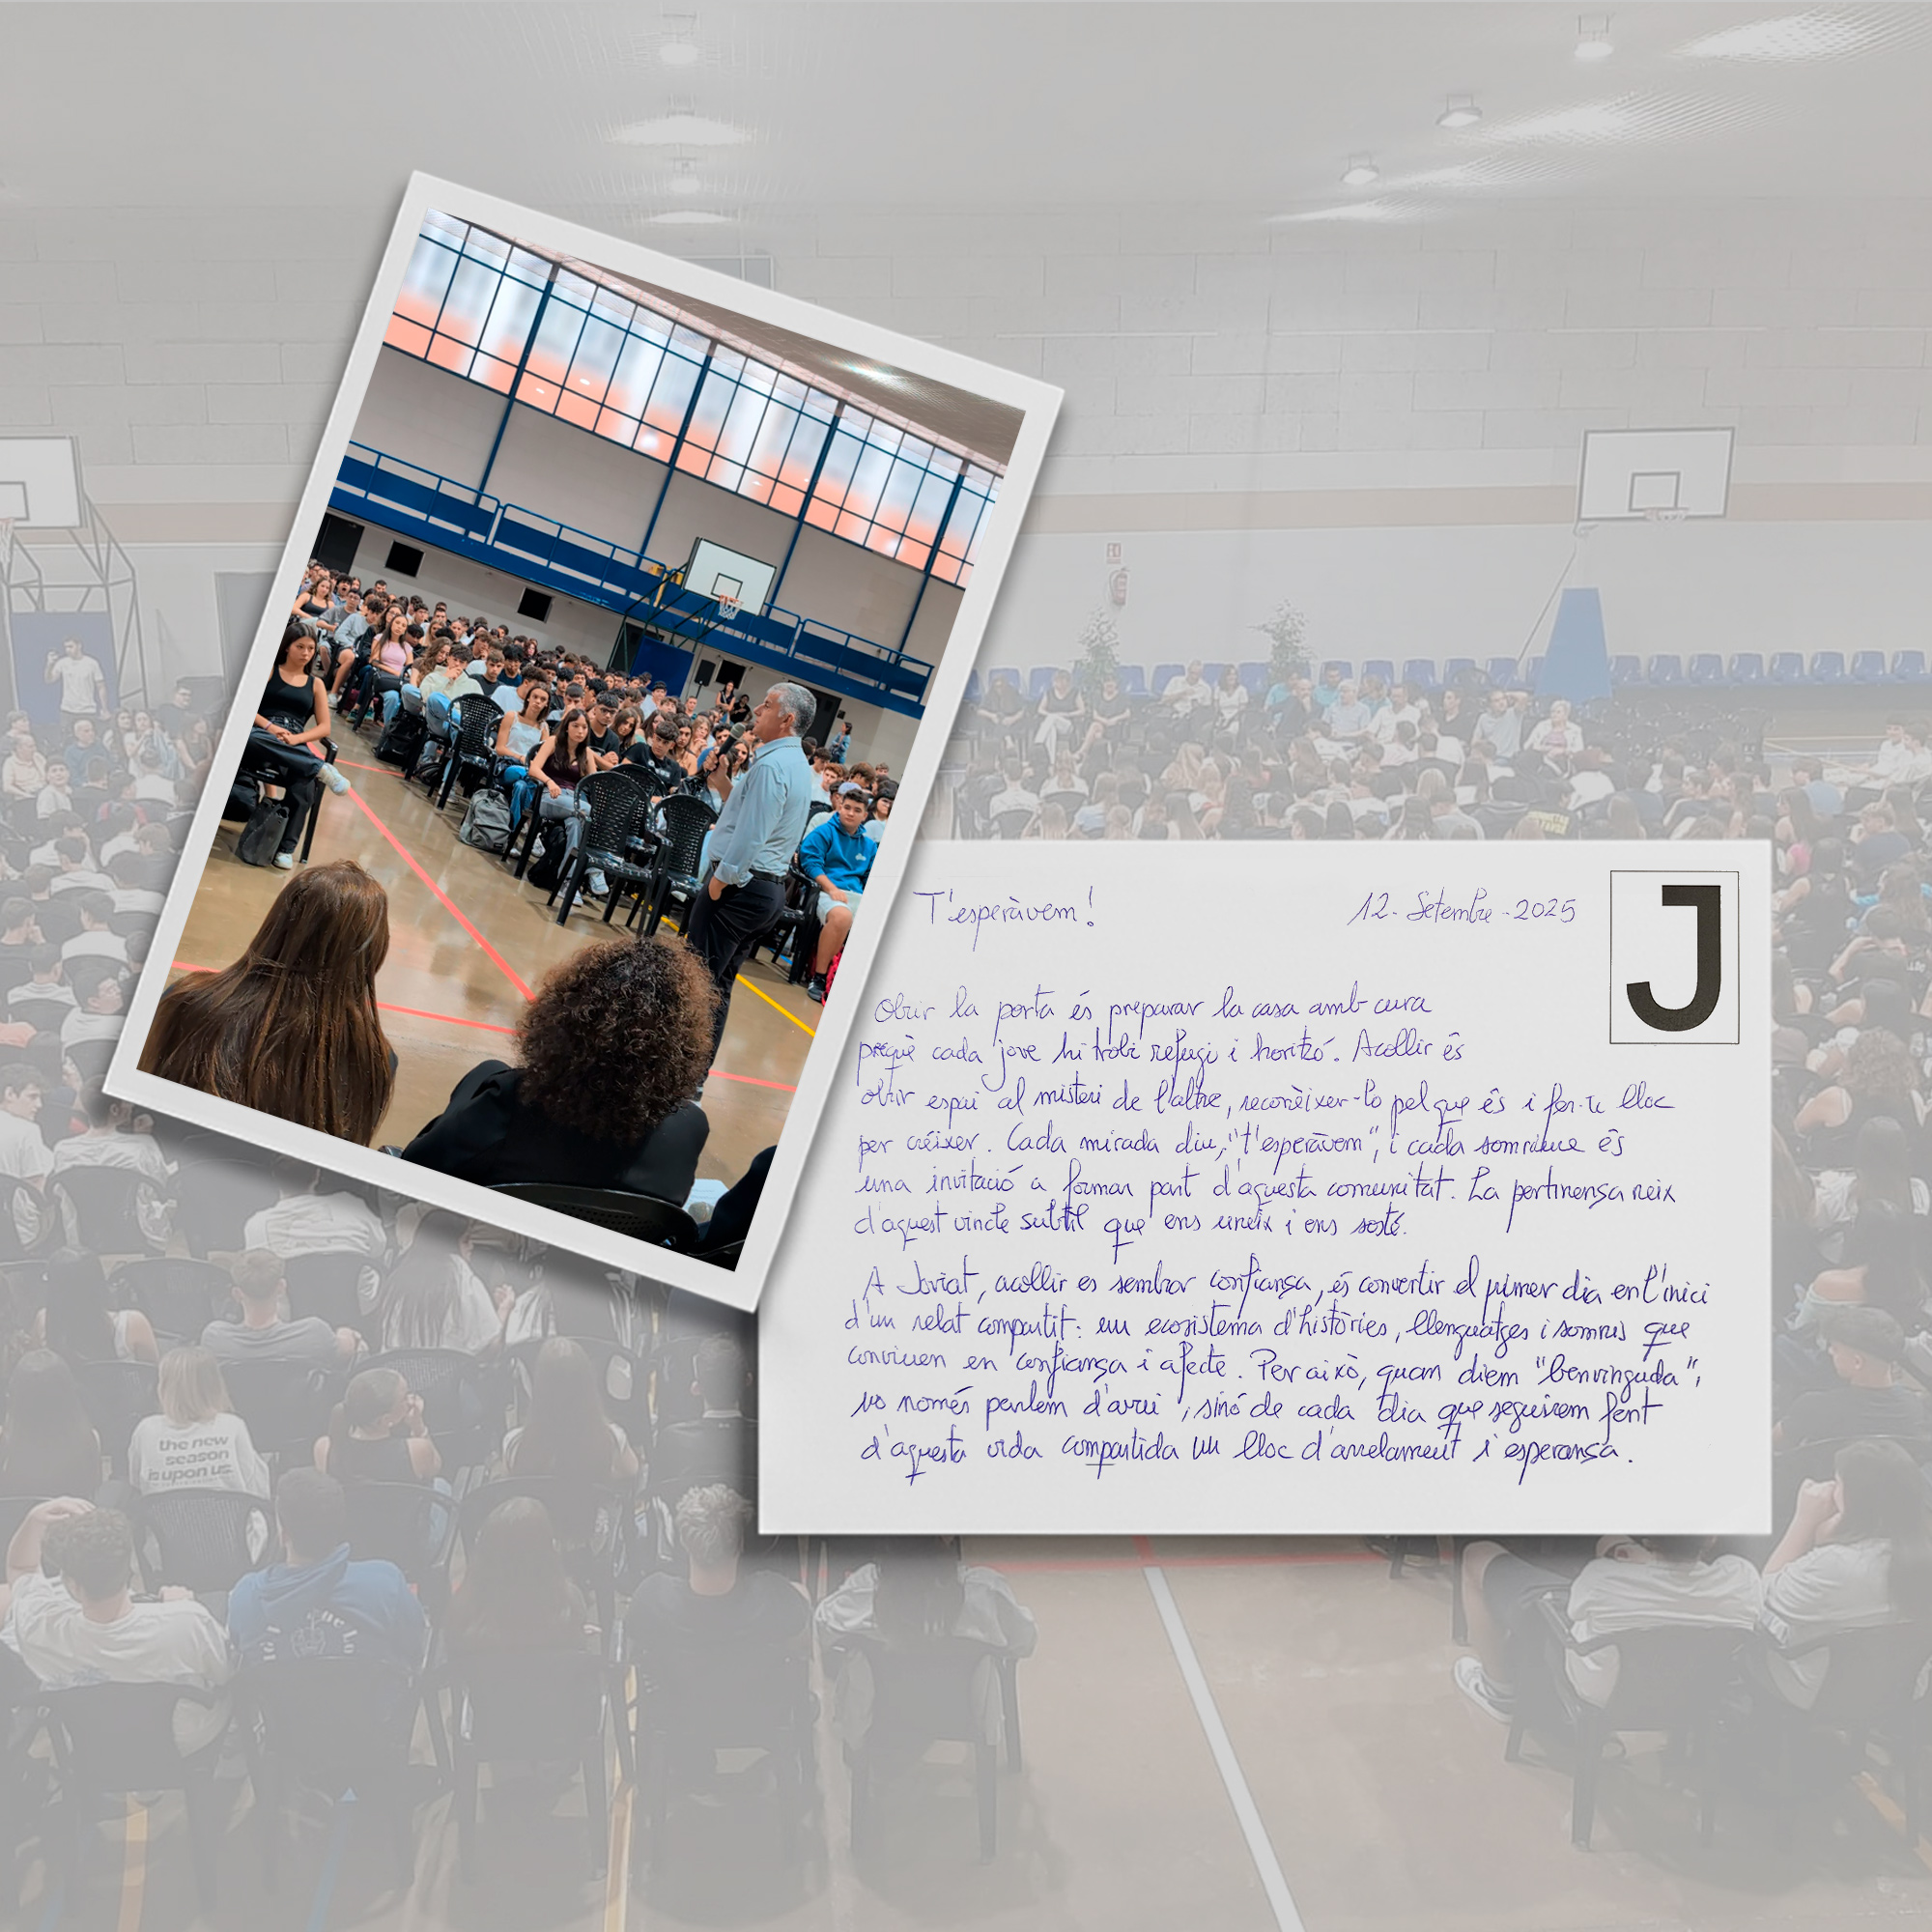 T'esperàvem!
12. Setembre - 2025
J
Obrir la porta és preparar la casa amb cura
perquè cada jove hi trobi refugi i horitzó. Acollir és
obrir espai al misteri de l'altre, reconèixer-lo pel que és i fer-te lloc
per créixer. Cada mirada diu: "t'esperàvem", i cada somriure és
una invitació a formar part d'aquesta comunitat. La pertinença neix
d'aquest vincle subtil que ens uneix i ens sosté.
A Joviat, acollir es sembrar confiança, és convertir el primer dia en l'inici
d'un relat compartit: un ecosistema d'històries, llenguatges i somnis que
conviuen en confiança i afecte. Per això, quan diem "benvinguda",
no només parlem d'avui, sinó de cada dia que seguirem fent
d'aquesta vida compartida un lloc d'arrelament i esperança.
the new
season
is upon us.